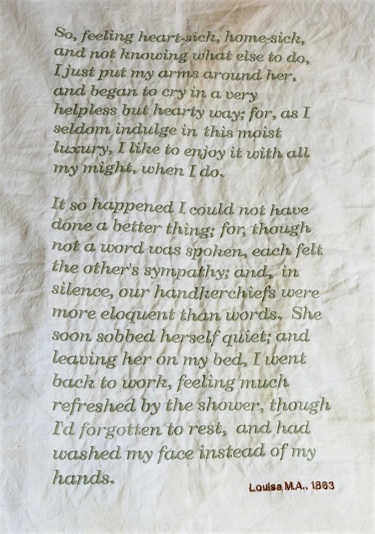 So, feeling heart-sick, home-sick,
and not knowing what else to do,
I just put my arms around her,
and began to cry in a very
helpless but hearty way; for, as I
seldom indulge in this moist
luxury, I like to enjoy it with all
my might, when I do.
It so happened I could not have
done a better thing; for, though
not a word was spoken, each felt
the other's sympathy; and, in
silence, our handkerchiefs were
more eloquent than words. She
soon sobbed herself quiet; and
leaving her on my bed, I went
back to work, feeling much
refreshed by the shower, though
I'd forgotten to rest, and had
washed my face instead of my
hands.
Louisa M.A., 1863